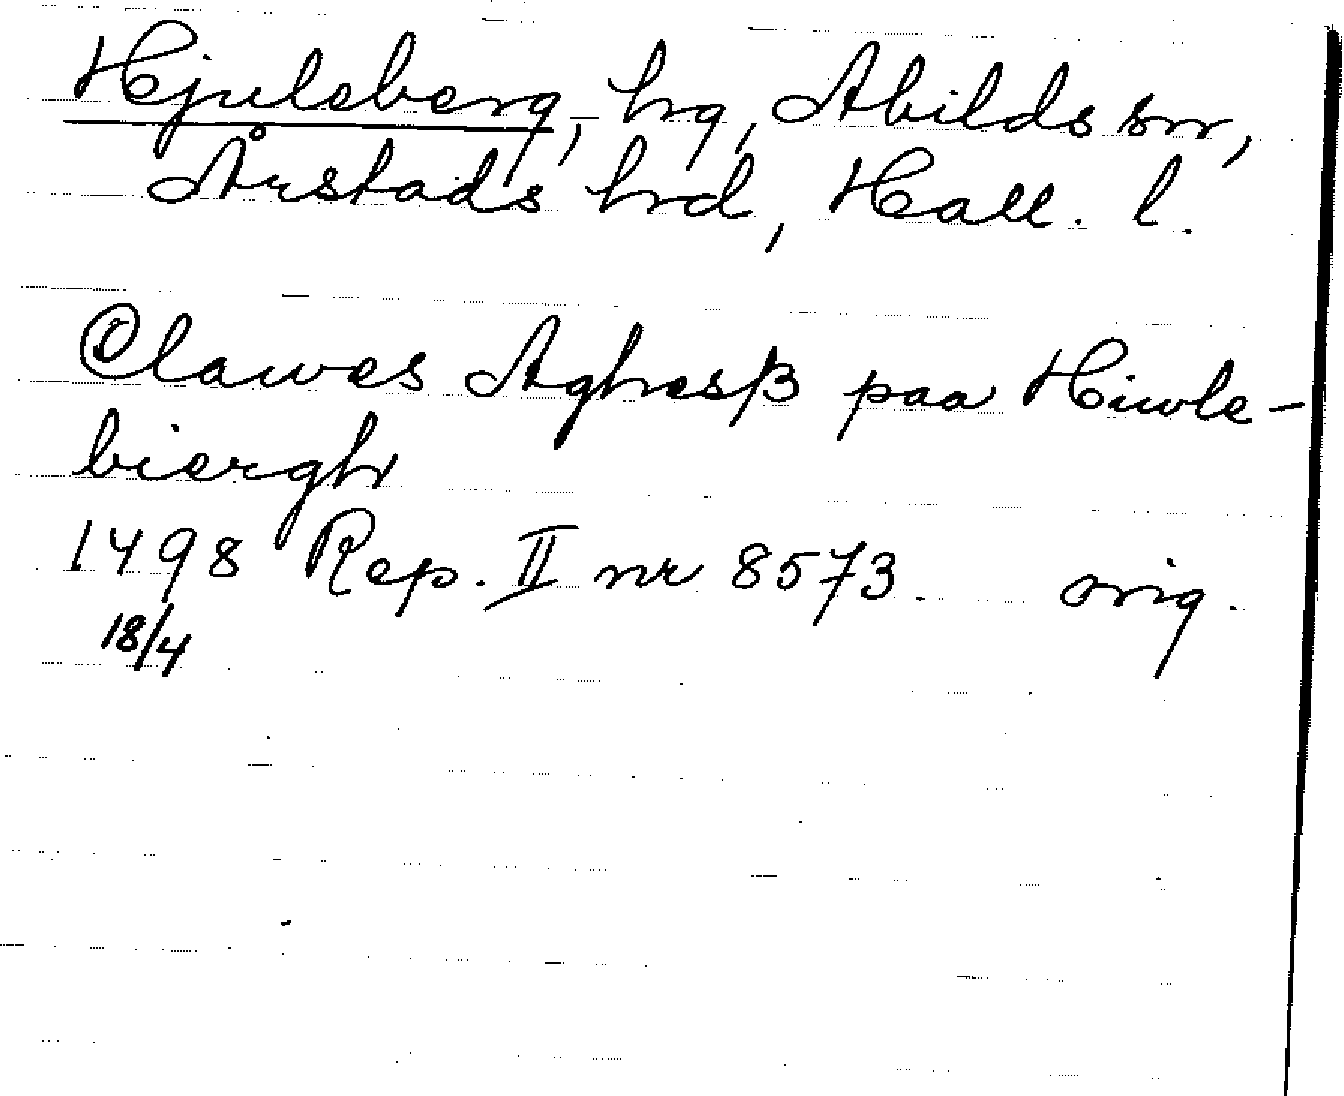 Hjuleberg, hg, Abilds sn,
Årstads hd, Hall. l.
Clawes Aghesß paa Hiwle-
biergh
1498 Rep. II nr 8573. orig.
18/4